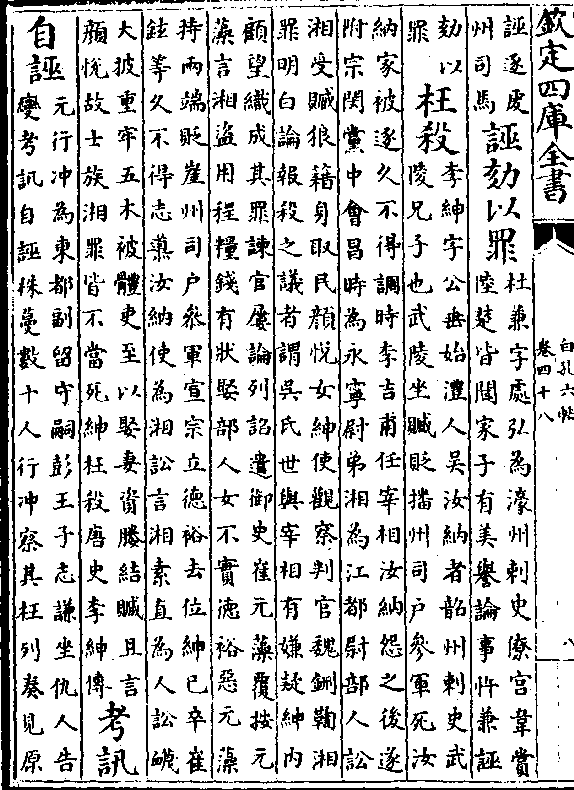 欽定四庫全書
白孔六帖
卷四十八
八
誣逐處
州司馬
誣劾以罪
杜兼字處弘為濠州刺史僚官韋賞
陸楚皆閥家子有美譽論事忤兼誣
劾以
罪
枉殺
李紳字公垂始澧人吳汝納者韶州刺史武
陵兄子也武陵坐贓貶播州司戶參軍死汝
納家被逐久不得調時李吉甫任宰相汝納怨之後遂
附宗閔黨中會昌時為永寧尉弟湘為江都尉部人訟
湘受贓狼籍身取民顏悅女紳使觀察判官魏鉶鞫湘
罪明白論報殺之議者謂吳氏世與宰相有嫌疑紳内
顧望織成其罪諫官屢論列詔遣御史崔元藻覆按元
藻言湘盜用程糧錢有狀娶部人女不實德裕惡元藻
持兩端貶崖州司戶叅軍宣宗立德裕去位紳已卒崔
鉉等久不得志導汝納使為湘訟言湘素直為人訟衊
大披重牢五木被體吏至以娶妻資媵結贓且言
顏悅故士族湘罪皆不當死紳枉殺唐史李紳傳
考訊
自誣
元行冲為東都副留守嗣彭王子志謙坐仇人告
變考訊自誣株蔓數十人行冲察其枉列奏見原